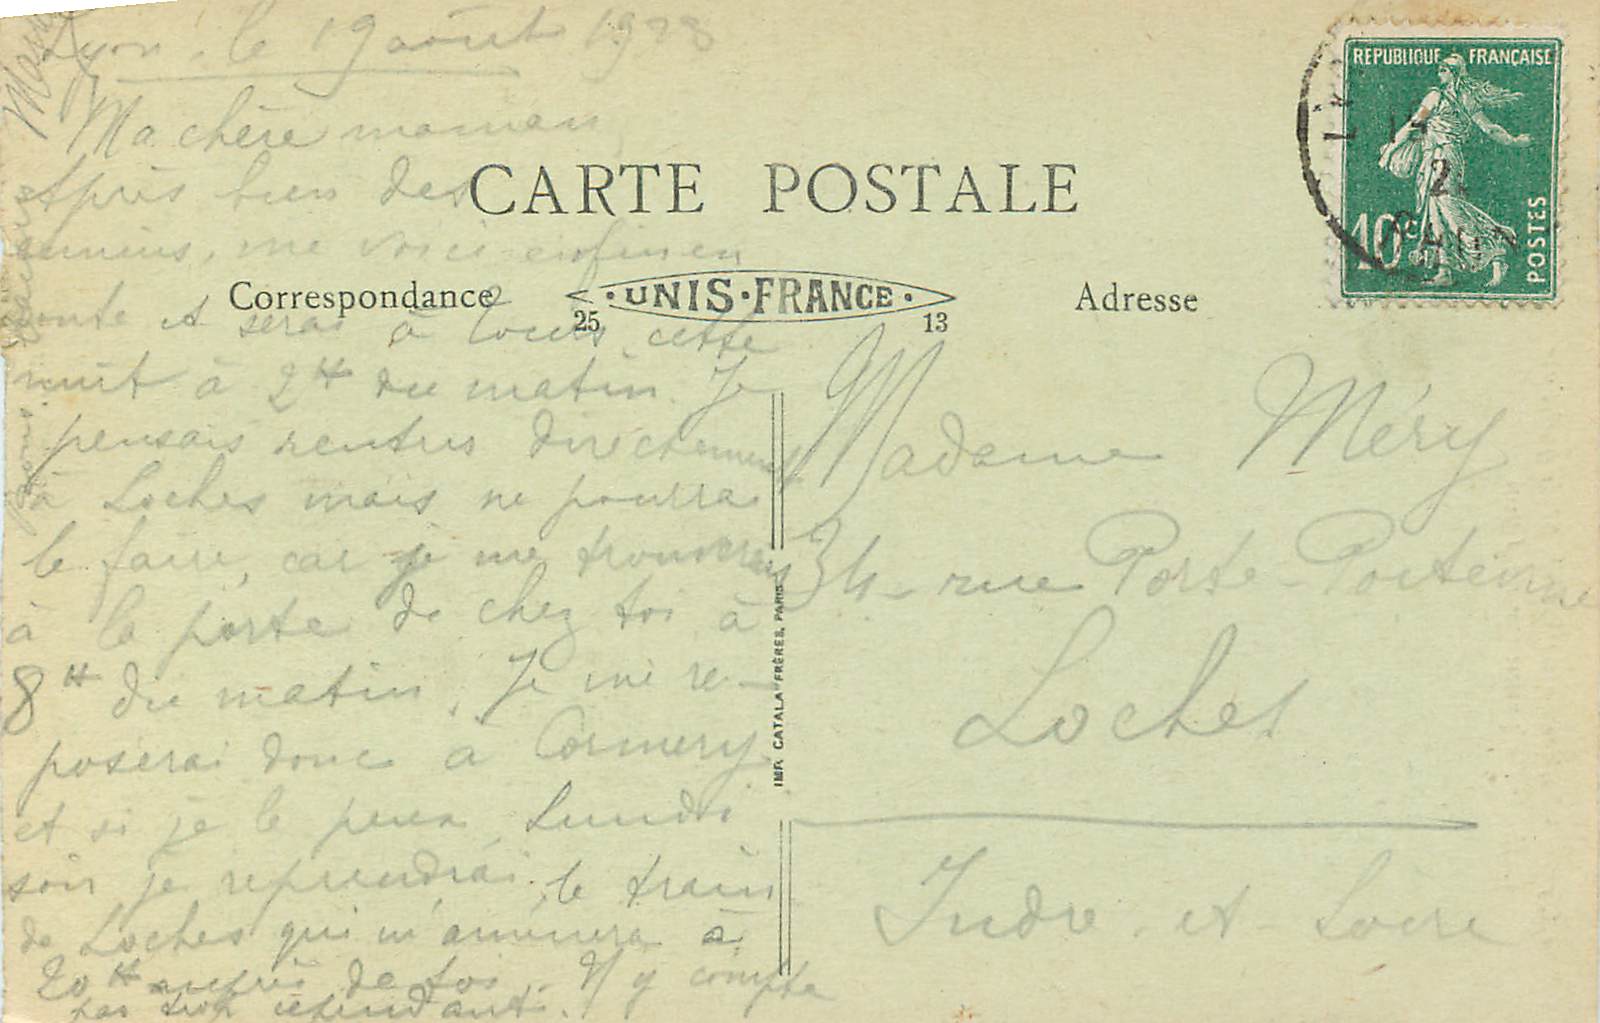 Lyon, le 19 août 1923
Ma chère maman
Après bien des
ennuis, me voici enfin en
route et serai à Tours cette
nuit à 2H du matin. Je
pensais rentrer directement
à Loches mais ne pourrai
le faire, car je me trouverais
à la porte de chez toi à
8H du matin. Je me re-
poserai donc à Cormery
et si je le peux Lundi
soir je reprendrai le train
de Loches qui m'amènera à
20H auprès de toi. N'y compte
pas trop cependant.
CARTE POSTALE
Correspondance
UNIS-FRANCE
25 13
Adresse
IMP. CATALA FRÈRES, PARIS
REPUBLIQUE FRANÇAISE
10c
POSTES
Madame Méry
34 - rue Porte-Poitevine
Loches
Indre et Loire